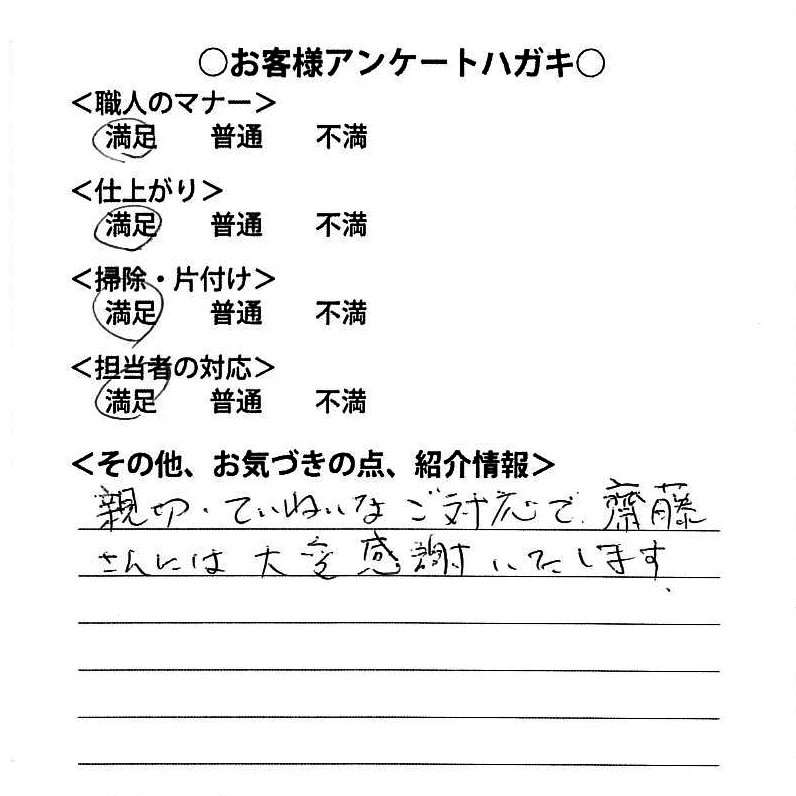 ○お客様アンケートハガキ○
＜職人のマナー＞
満足 普通 不満
＜仕上がり＞
満足 普通 不満
＜掃除・片付け＞
満足 普通 不満
＜担当者の対応＞
満足 普通 不満
＜その他、お気づきの点、紹介情報＞
親切・ていねいなご対応で、齋藤
さんには大変感謝いたします.